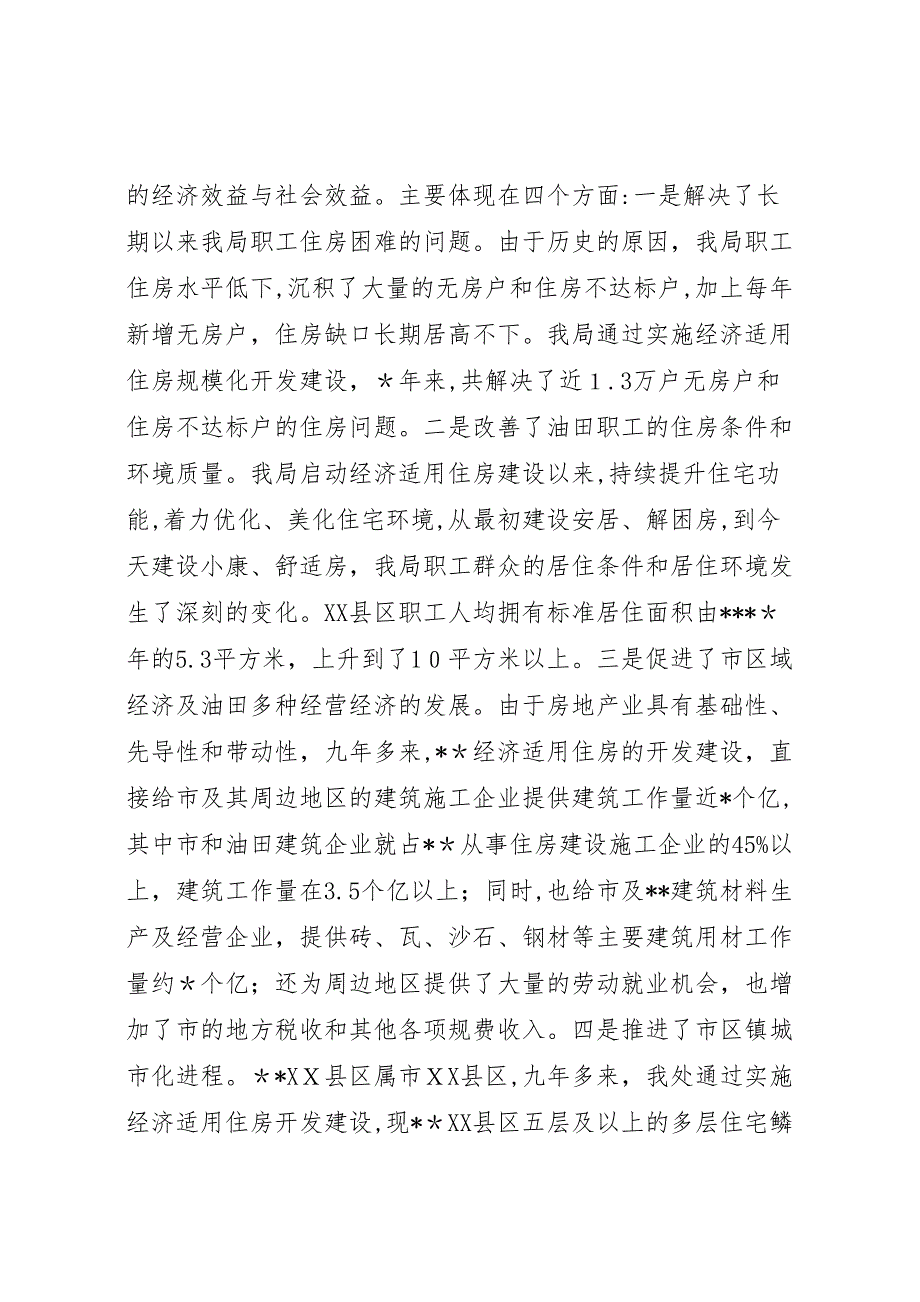 的经济效益与社会效益。主要体现在四个方面:一是解决了长
期以来我局职工住房困难的问题。由于历史的原因，我局职工
住房水平低下,沉积了大量的无房户和住房不达标户,加上每年
新增无房户，住房缺口长期居高不下。我局通过实施经济适用
住房规模化开发建设，＊年来,共解决了近１.3万户无房户和
住房不达标户的住房问题。二是改善了油田职工的住房条件和
环境质量。我局启动经济适用住房建设以来,持续提升住宅功
能,着力优化、美化住宅环境,从最初建设安居、解困房,到今
天建设小康、舒适房，我局职工群众的居住条件和居住环境发
生了深刻的变化。XX县区职工人均拥有标准居住面积由***＊
年的5.3平方米，上升到了1０平方米以上。三是促进了市区域
经济及油田多种经营经济的发展。由于房地产业具有基础性、
先导性和带动性，九年多来,*＊经济适用住房的开发建设，直
接给市及其周边地区的建筑施工企业提供建筑工作量近*个亿,
其中市和油田建筑企业就占*＊从事住房建设施工企业的45%以
上，建筑工作量在3.5个亿以上；同时,也给市及**建筑材料生
产及经营企业，提供砖、瓦、沙石、钢材等主要建筑用材工作
量约＊个亿；还为周边地区提供了大量的劳动就业机会，也增
加了市的地方税收和其他各项规费收入。四是推进了市区镇城
市化进程。＊*XＸ县区属市ＸX县区,九年多来，我处通过实施
经济适用住房开发建设,现*＊XX县区五层及以上的多层住宅鳞